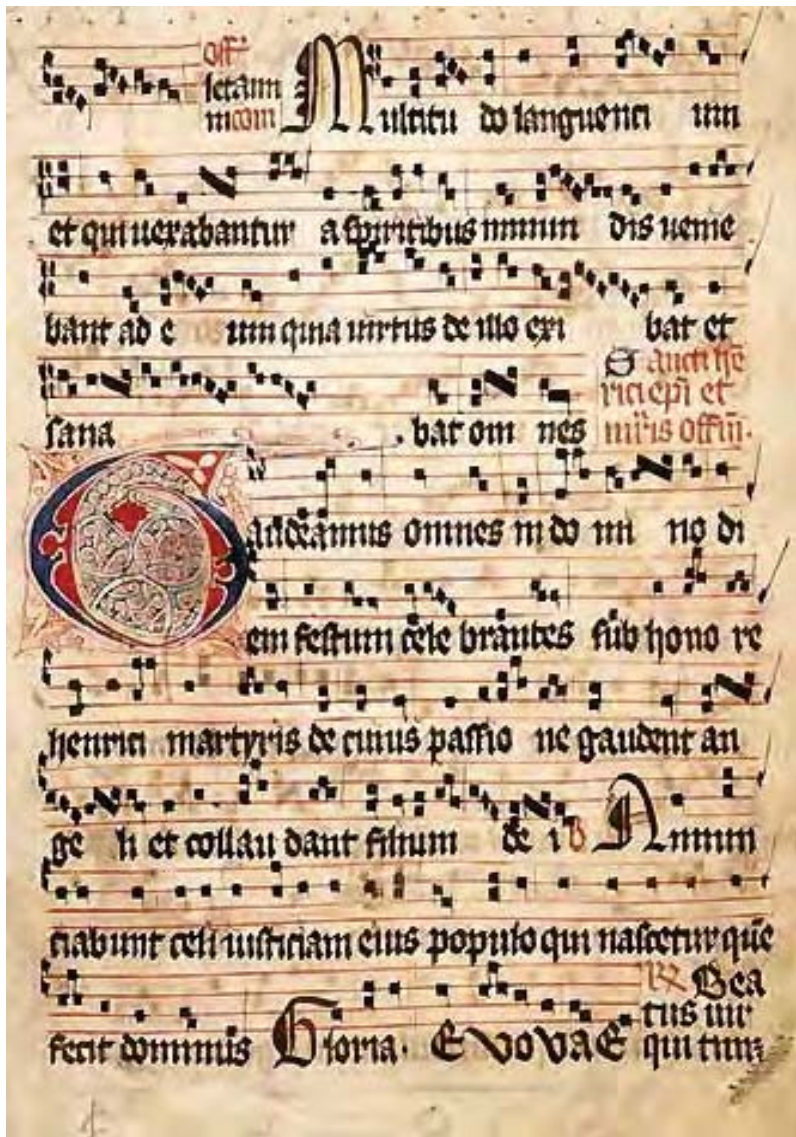 off
letam
in com
Multitu do languenti um
et qui uexabantur a spiritibus inmun dis uenie
bant ad e um quia uirtus de illo exi bat et
sana bat om nes
Sancti he
rici epi et
mris offm.
Gaudeamus omnes in do mi no di
em festum cele brantes sub hono re
henrici martyris de cuius passio ne gaudent an
ge li et collau dant filium de i V Annun
ciabunt celi iusticiam eius populo qui nascetur que
fecit dominus Gloria. E vovaE
Bea
tus uir
qui tim